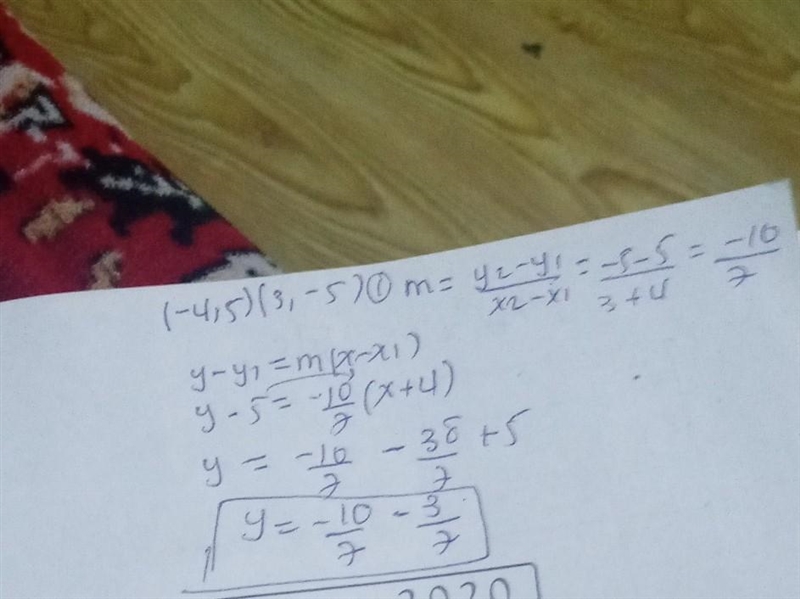 (-4,5)(3,-5) ① m = y2-y1/x2-x1 = -5-5/3+4 = -10/7
y-y1 = m(x-x1)
y-5 = -10/7 (x+4)
y = -10/7 - 38/7 + 5
y = -10/7 - 3/7
2020